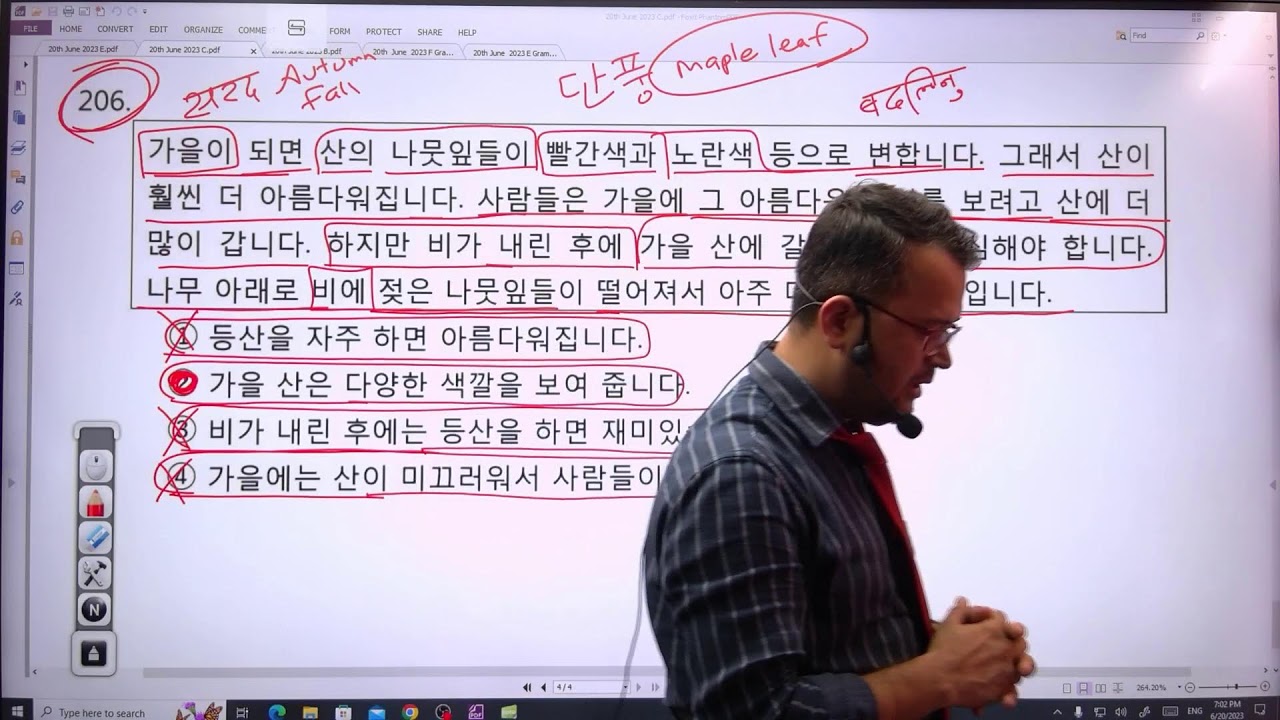 FILE HOME CONVERT EDIT ORGANIZE COMME FORM PROTECT SHARE HELP
Find
20th June 2023 E.pdf 20th June 2023 C.pdf B.pdf 20th June 2023 F Gra... 20th June 2023 E Gram...
206. शरद Autumn Fall 단풍 maple leaf बदलिनु
가을이 되면 산의 나뭇잎들이 빨간색과 노란색 등으로 변합니다. 그래서 산이
훨씬 더 아름다워집니다. 사람들은 가을에 그 아름다운 보려고 산에 더
많이 갑니다. 하지만 비가 내린 후에 가을 산에 해야 합니다.
나무 아래로 비에 젖은 나뭇잎들이 떨어져서 아주 입니다.
① 등산을 자주 하면 아름다워집니다.
가을 산은 다양한 색깔을 보여 줍니다.
③ 비가 내린 후에는 등산을 하면
④ 가을에는 산이 미끄러워서 사람들이
N
4/4
264.20%
Type here to search
ENG
7:02 PM
6/20/2023